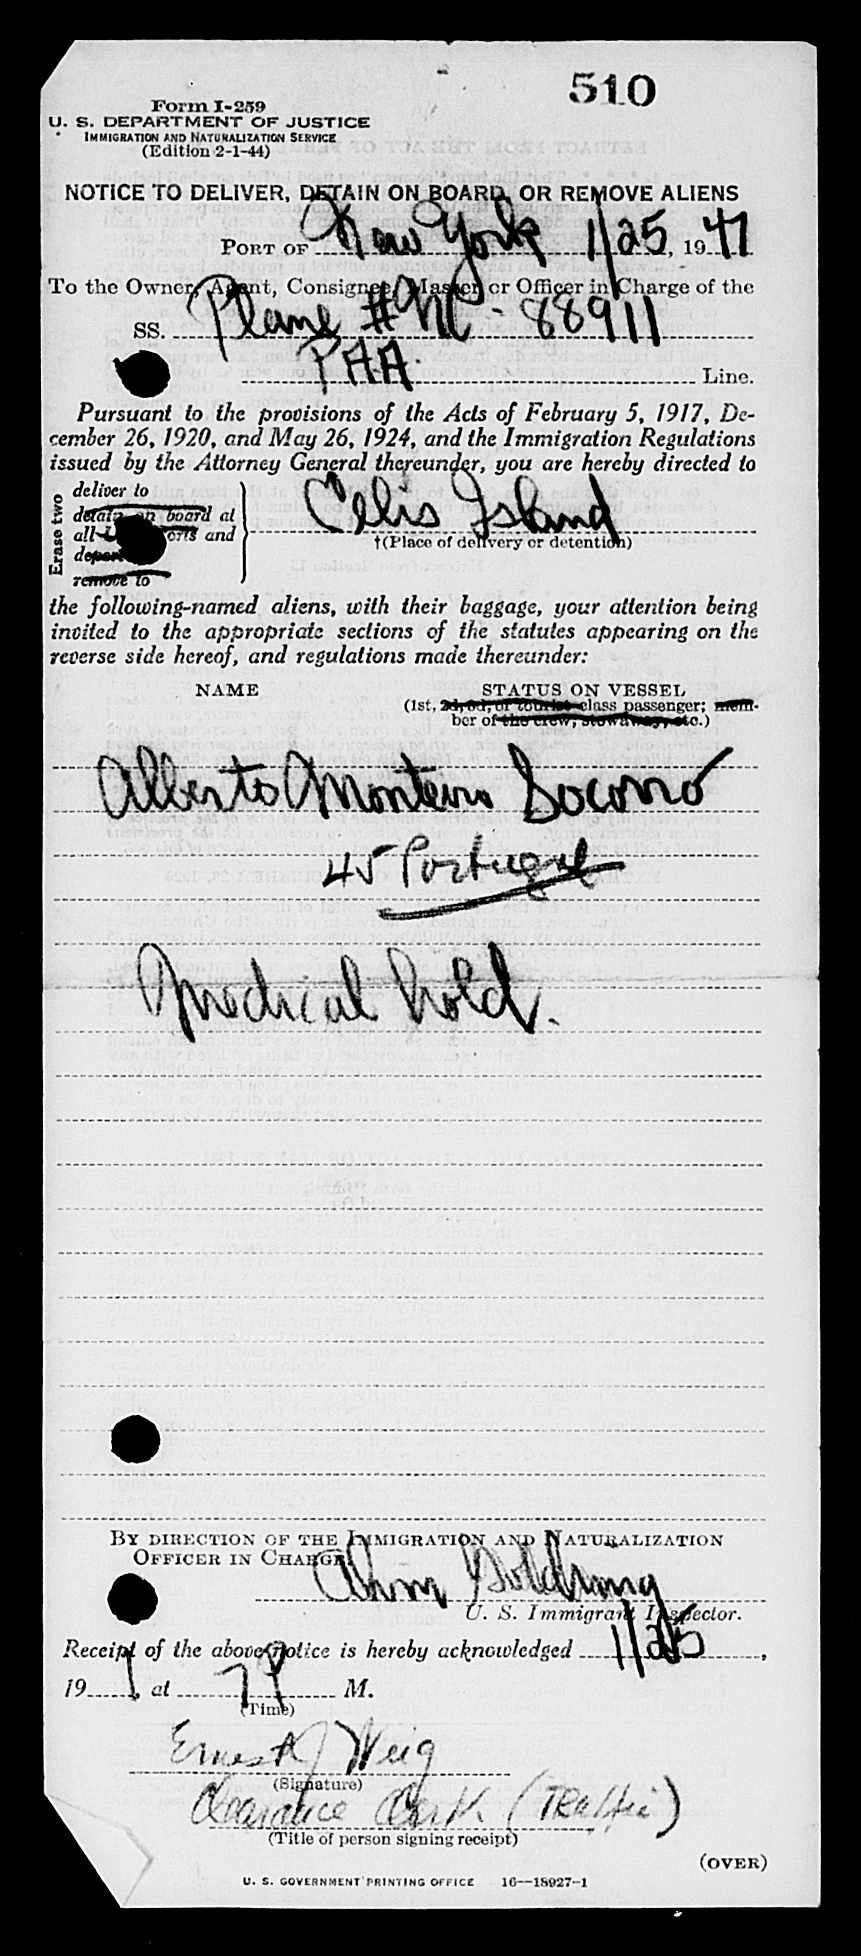 510
Form I-259
U. S. DEPARTMENT OF JUSTICE
IMMIGRATION AND NATURALIZATION SERVICE
(Edition 2-1-44)
NOTICE TO DELIVER, DETAIN ON BOARD, OR REMOVE ALIENS
PORT OF New York 1/25, 1947
To the Owner, Agent, Consignee, Master, or Officer in Charge of the
SS. Plane # NC - 88911
PAA Line.
Pursuant to the provisions of the Acts of February 5, 1917, De-
cember 26, 1920, and May 26, 1924, and the Immigration Regulations
issued by the Attorney General thereunder, you are hereby directed to
Erase two
deliver to
detain on board at
all ports and
remove to
Ellis Island
†(Place of delivery or detention)
the following-named aliens, with their baggage, your attention being
invited to the appropriate sections of the statutes appearing on the
reverse side hereof, and regulations made thereunder:
NAME STATUS ON VESSEL
(1st, 2d, 3d, or tourist-class passenger; mem-
ber of the crew, stowaway, etc.)
Alberto Monteiro Socorro
45 Portugal
Medical hold.
BY DIRECTION OF THE IMMIGRATION AND NATURALIZATION
OFFICER IN CHARGE
U. S. Immigrant Inspector.
Receipt of the above notice is hereby acknowledged 1/25,
19, at 7 P M.
(Time)
Ernest J
(Signature)
Clearance Clerk (Traffic)
(Title of person signing receipt)
(OVER)
U. S. GOVERNMENT PRINTING OFFICE 16—18927-1